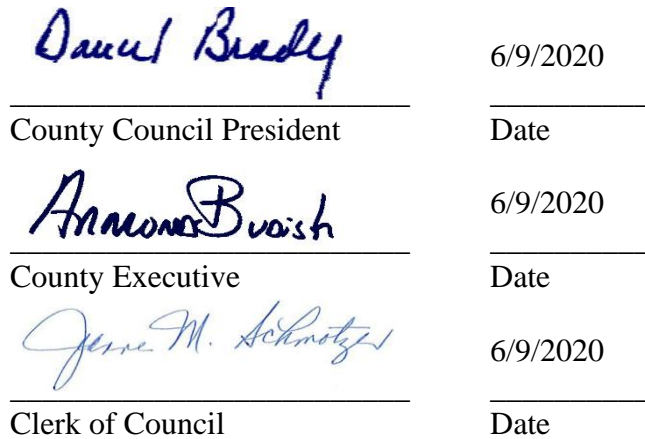 Daniel Brady
6/9/2020
County Council President Date
Armond Budish
6/9/2020
County Executive Date
Jeanne M. Schmotzer
6/9/2020
Clerk of Council Date